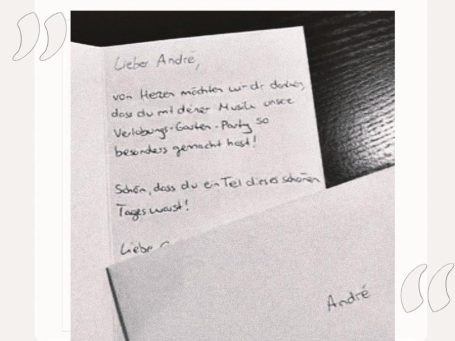 Lieber André,
von Herzen möchten wir dir danken,
dass du mit deiner Musik unsere
Verlobungs-Garten-Party so
besonders gemacht hast!
Schön, dass du ein Teil dieses schönen
Tages warst!
Liebe
André